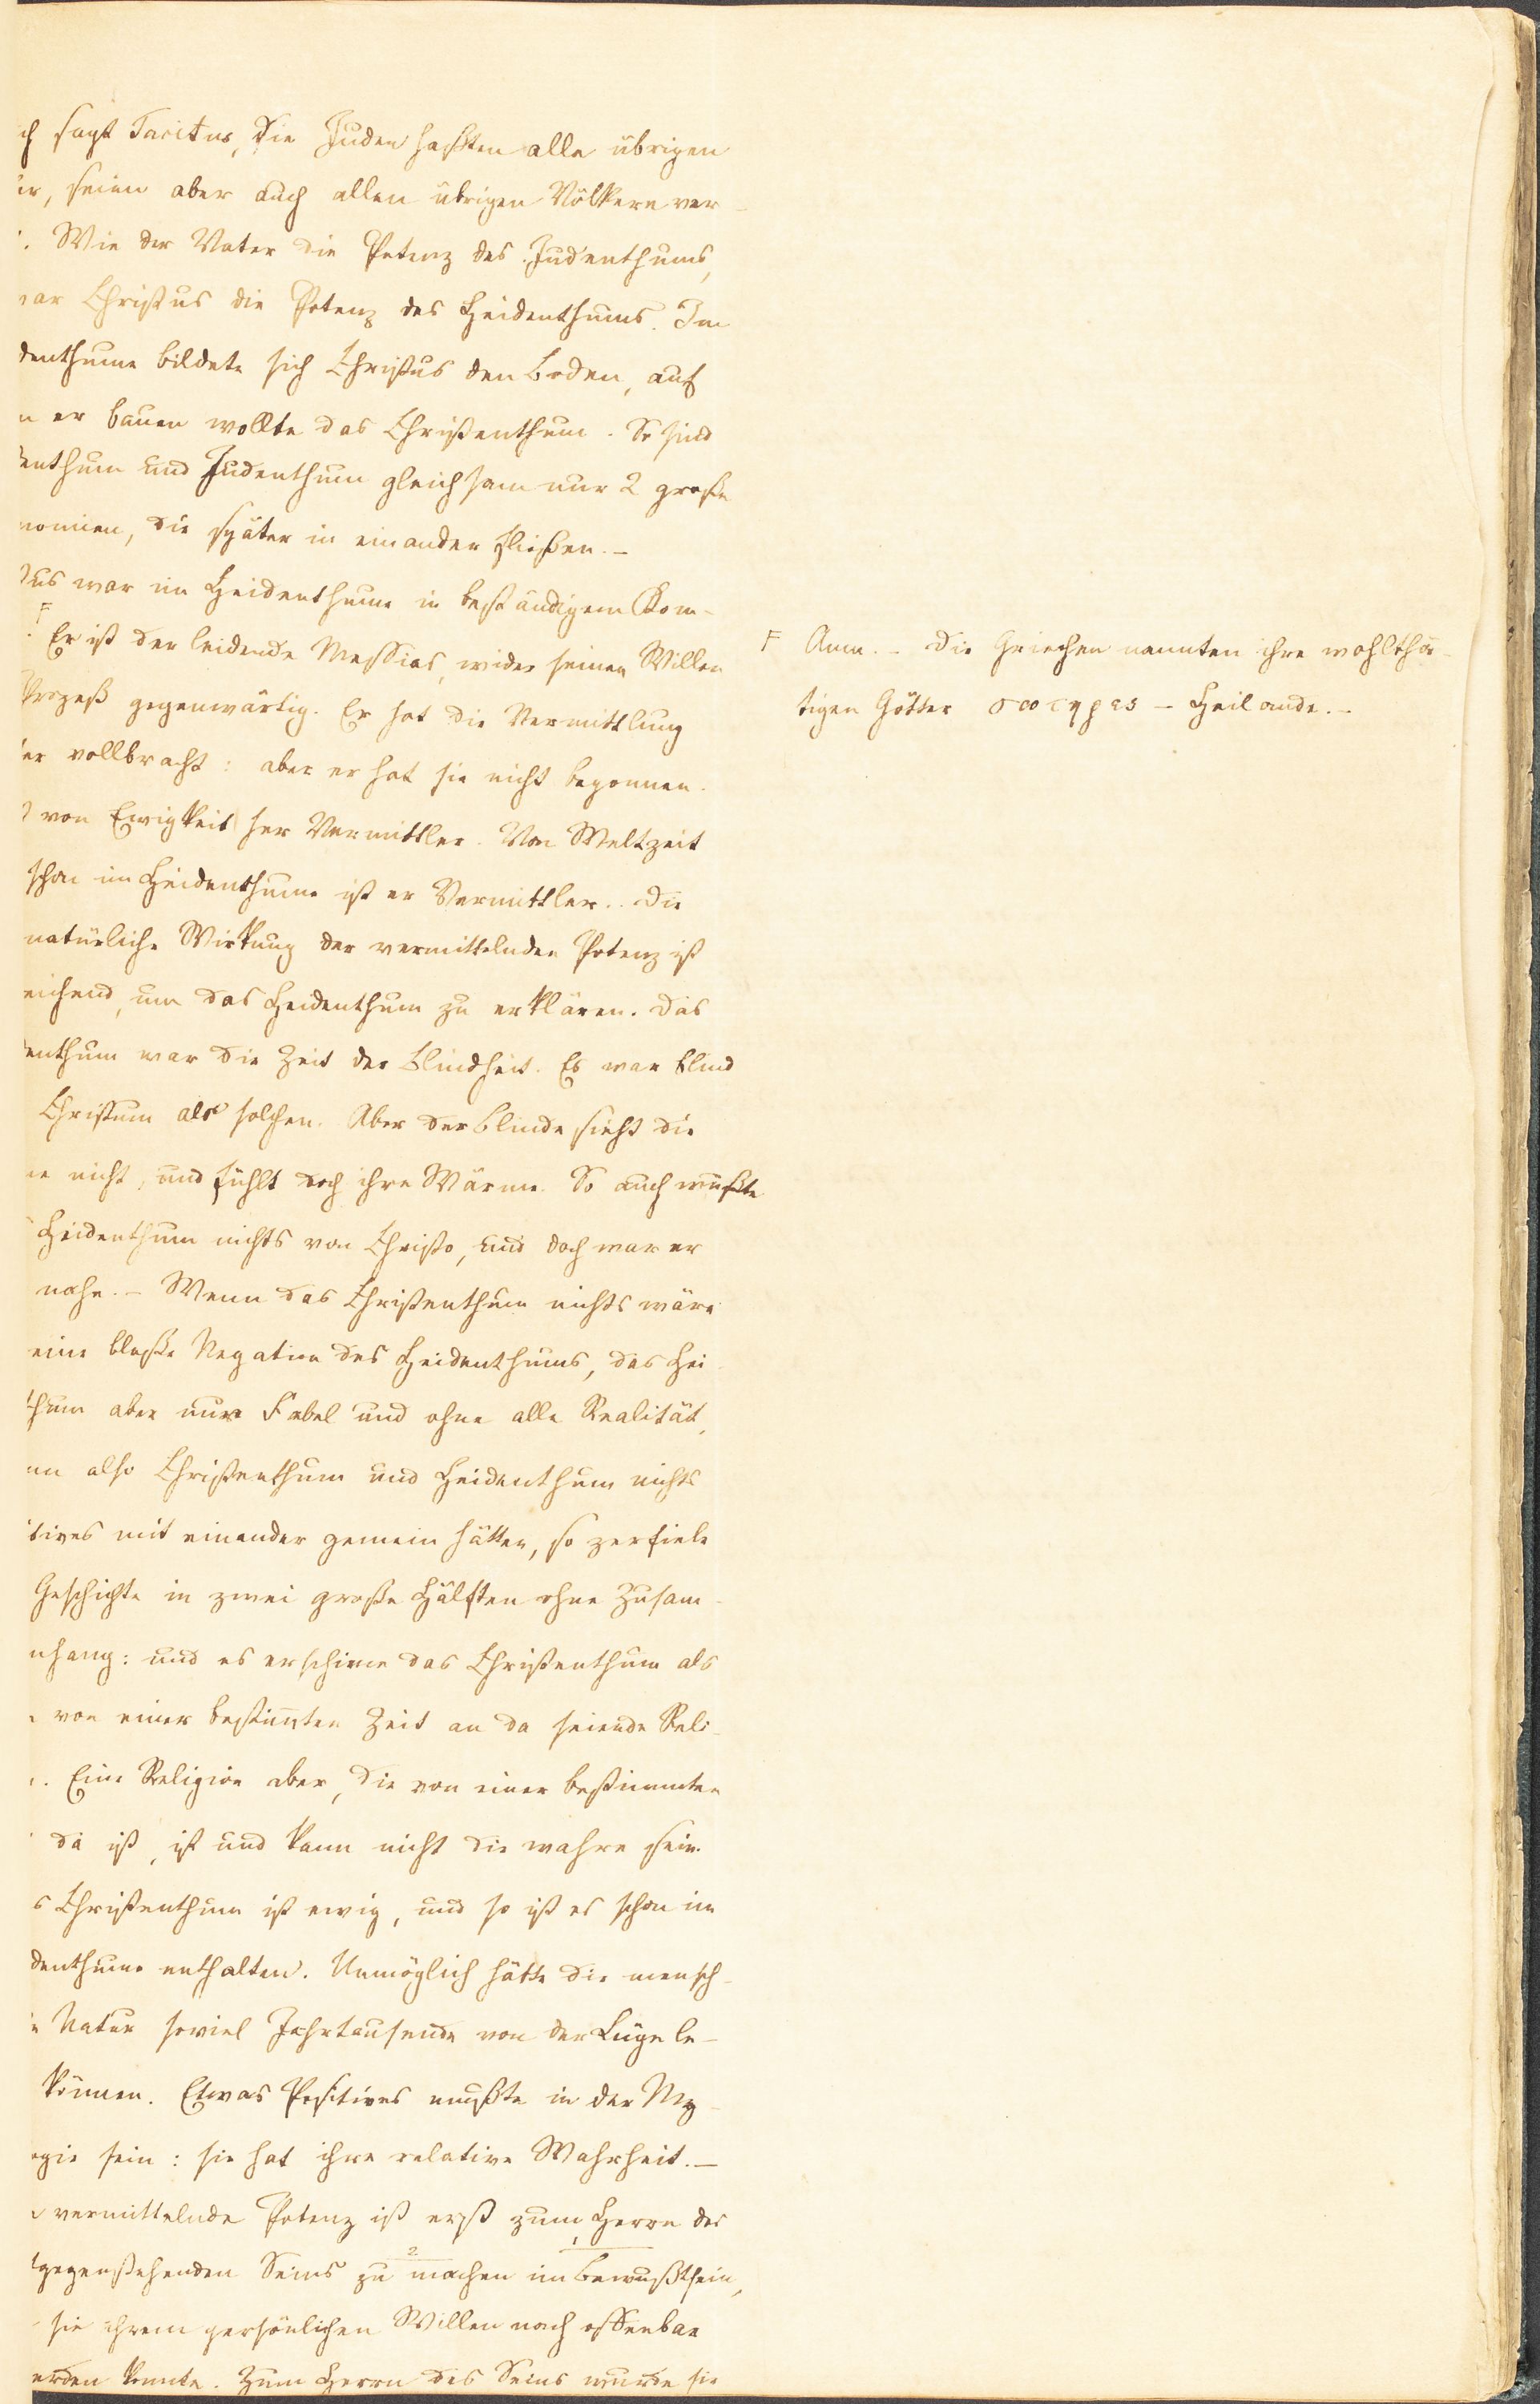 ch sagt Tacitus, die Juden haßten alle übrigen
er, seien aber auch allen übrigen Völkern ver-
. Wie der Vater die Potenz des Judenthums,
ar Christus die Potenz des Heidenthums. Im
denthume bildete sich Christus den Boden, auf
n er bauen wollte das Christenthum. So sind
enthum und Judenthum gleichsam nur 2 große
nomien, die später in einander fließen. –
tus war im Heidenthume in beständigem Kom-
. F Er ist der leidende Messias, wider seinen Willen
Prozeß gegenwärtig. Er hat die Vermittlung
er vollbracht: aber er hat sie nicht begonnen.
von Ewigkeit her Vermittler. Von Weltzeit
schon im Heidenthume ist er Vermittler. Die
natürliche Wirkung der vermittelnden Potenz ist
eichend, um das Heidenthum zu erklären. Das
enthum war die Zeit der Blindheit. Es war blind
Christum als solchen. Aber der Blinde sieht die
ne nicht, und fühlt doch ihre Wärme. So auch wußte
Heidenthum nichts von Christo, und doch war er
nahe. – Wenn das Christenthum nichts wäre
eine bloße Negation des Heidenthums, das Hei-
thum aber nur Fabel und ohne alle Realität,
nn also Christenthum und Heidenthum nichts
itives mit einander gemein hätten, so zerfiele
Geschichte in zwei große Hälften ohne Zusam-
nhang: und es erschiene das Christenthum als
von einer bestim̅ten Zeit an da seiende Reli-
. Eine Religion aber, die von einer bestimmten
da ist, ist und kann nicht die wahre sein.
s Christenthum ist ewig, und so ist es schon im
denthume enthalten. Unmöglich hätte die mensch-
e Natur soviel Jahrtausende von der Lüge le-
können. Etwas Positives mußte in der My-
ogie sein: sie hat ihre relative Wahrheit. –
vermittelnde Potenz ist erst zum Herrn des
tgegenstehenden Seins zu machen im Bewußtsein,
sie ihrem persönlichen Willen nach offenbar
erden konnte. Zum Herrn des Seins wurde sie
F Anm. – Die Griechen nannten ihre wohlthä-
tigen Götter σωτηρες – Heilande. –